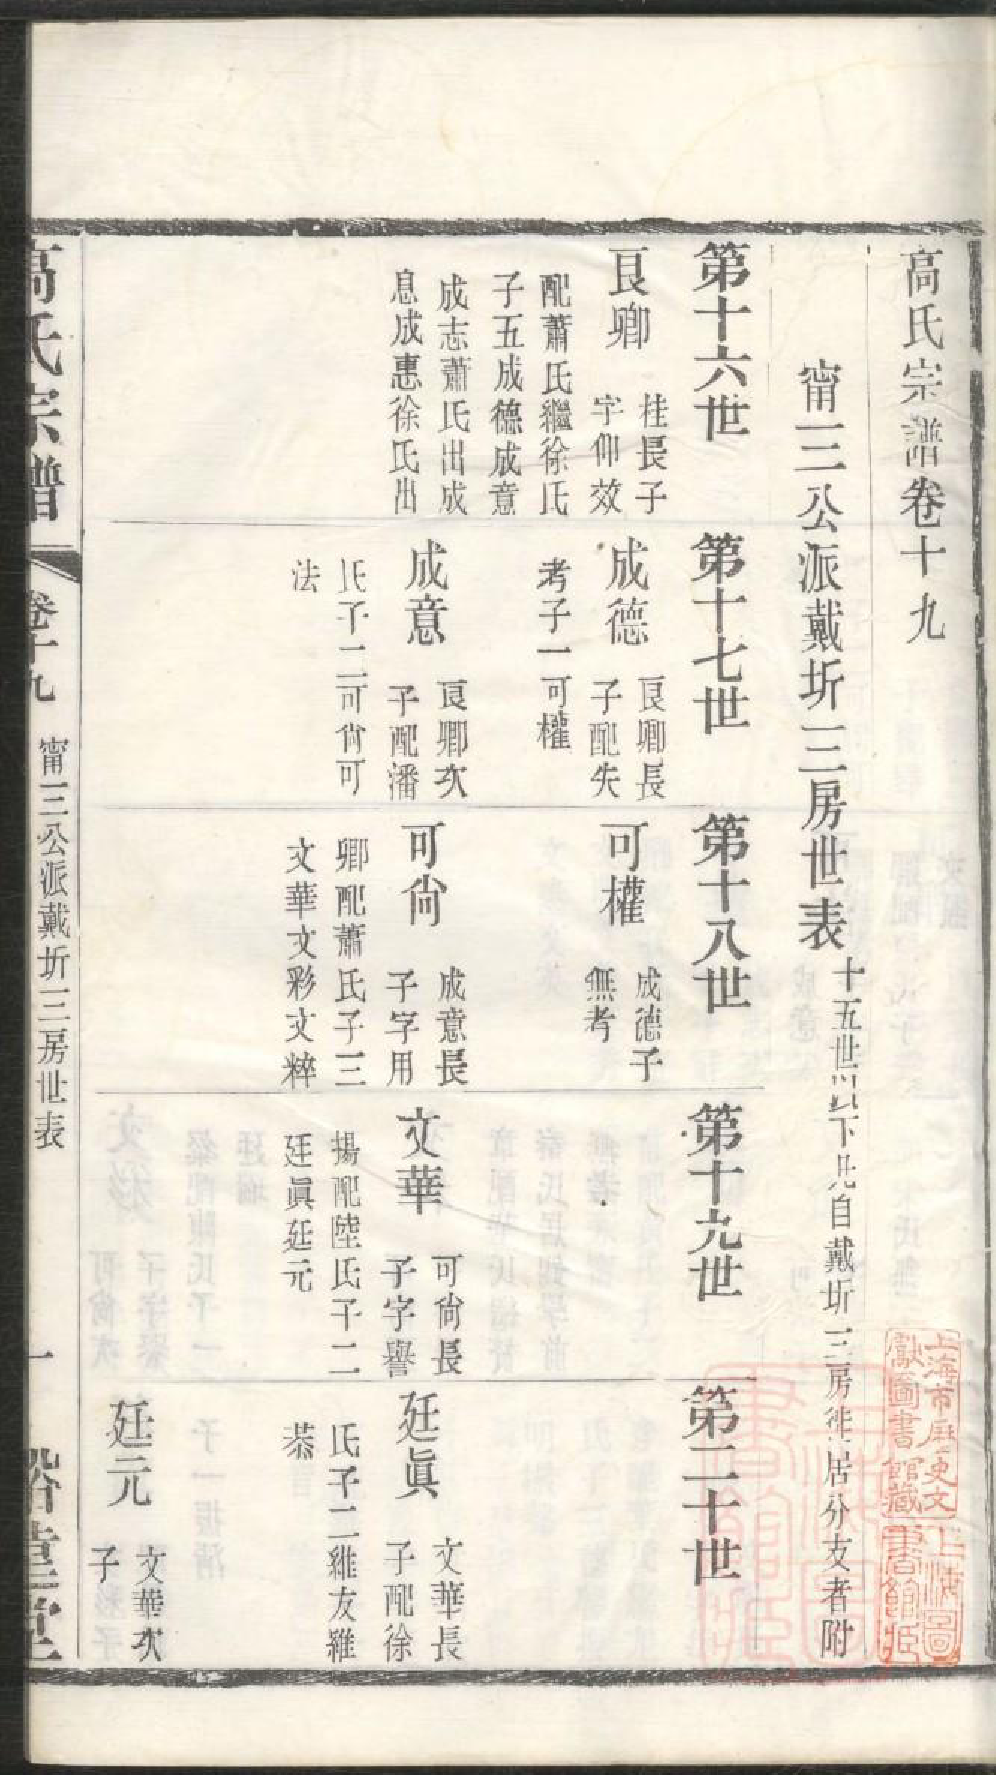 高氏宗譜卷十九
甯三公派戴圻三房世表
十五世以下凡自戴圻三房徙居分支者附
第十六世
良卿
桂長子
字仰效
配蕭氏繼徐氏
子五成德成意
成志蕭氏出成
息成惠徐氏出
第十七世
成德
良卿長
子配失
考子一可權
成意
良卿次
子配潘
氏子二可尙可
法
第十八世
可權
成德子
無考
可尙
成意長
子字用
卿配蕭氏子三
文華文彩文粹
第十九世
文華
可尙長
子字譽
揚配陸氏子二
廷眞廷元
第二十世
廷眞
文華長
子配徐
氏子二維友維
恭
廷元
文華次
子
高氏宗譜
卷十九
甯三公派戴圻三房世表
一
裕堂
上海市歷史文
獻圖書館藏
上海圖
書館藏